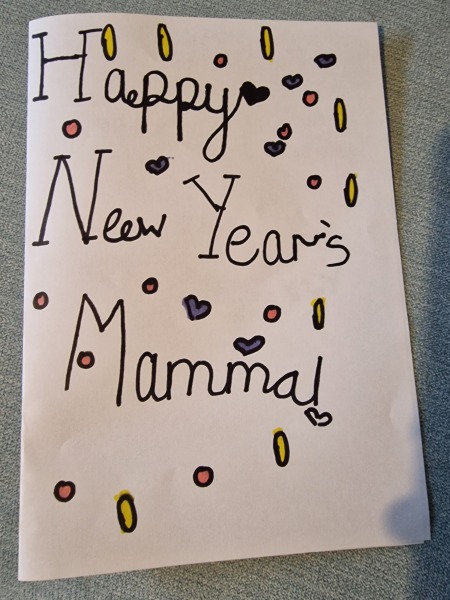 Happy
New Year's
Mamma!